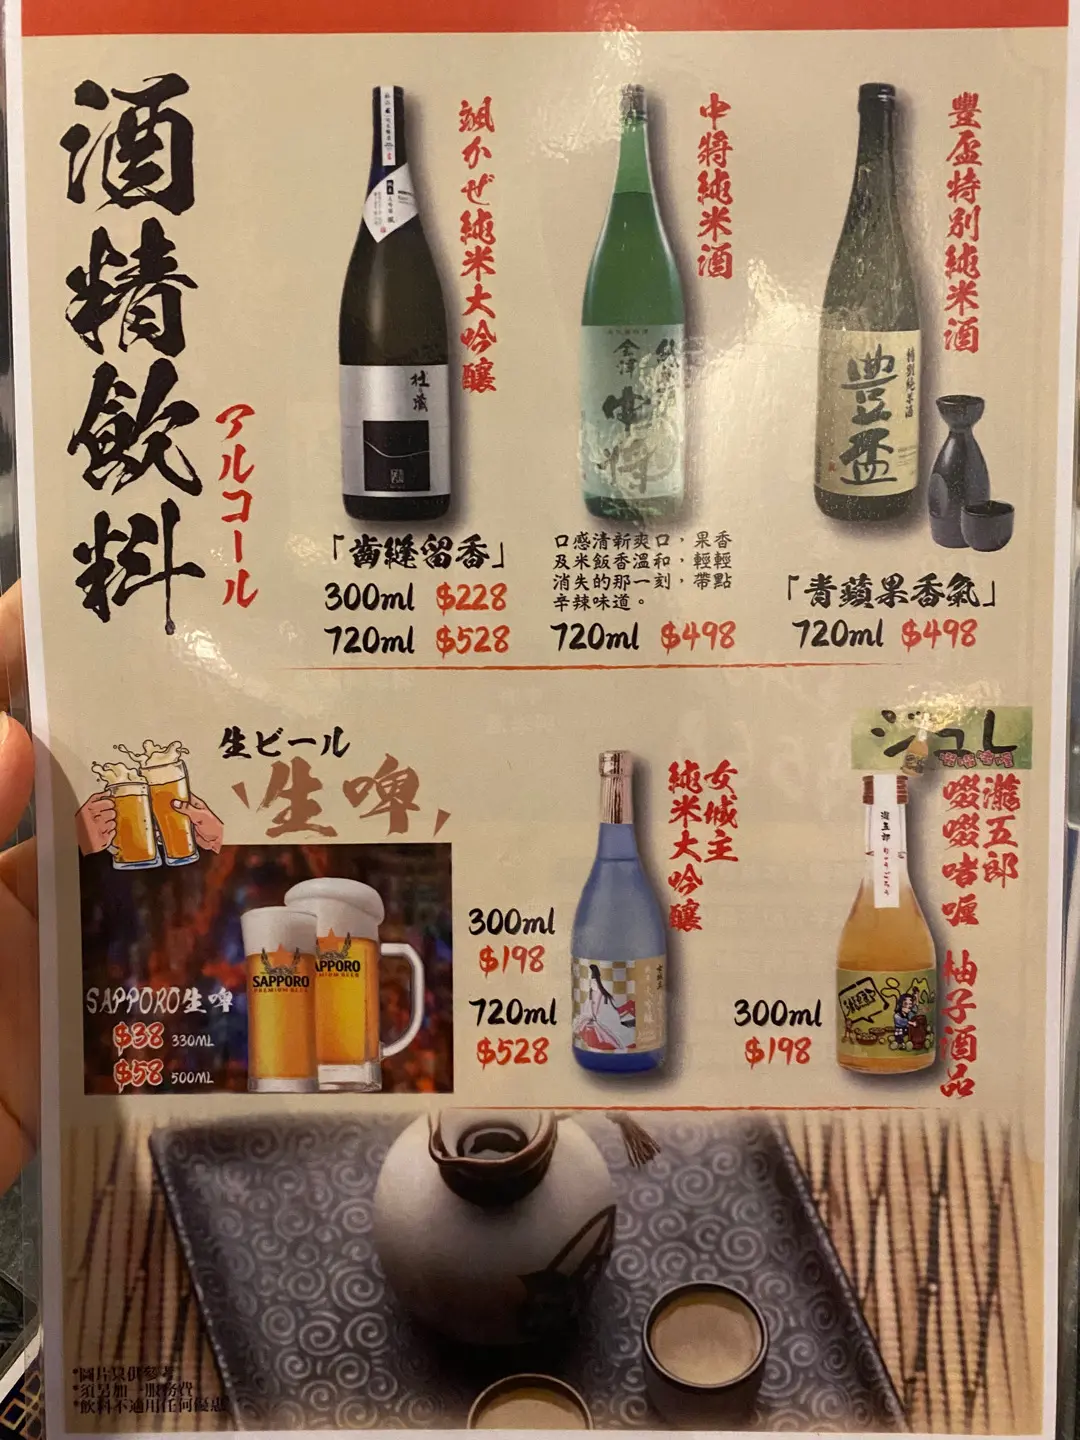 酒精飲料
アルコール
颯かぜ純米大吟釀
「齒縫留香」
300ml $228
720ml $528
中將純米酒
純米酒
会津
中将
口感清新爽口，果香
及米飯香溫和，輕輕
消失的那一刻，帶點
辛辣味道。
720ml $498
豐盃特別純米酒
特別純米酒
豊盃
「青蘋果香氣」
720ml $498
生ビール
生啤
SAPPORO
PREMIUM BEER
SAPPORO生啤
$38 330ML
$58 500ML
女城主
純米大吟釀
300ml
$198
720ml
$528
瀧五郎
啜啜啫喱
柚子酒品
瀧五郎
りゅうごろう
300ml
$198
*圖片只供參考
*須另加一服務費
*飲料不適用任何優惠